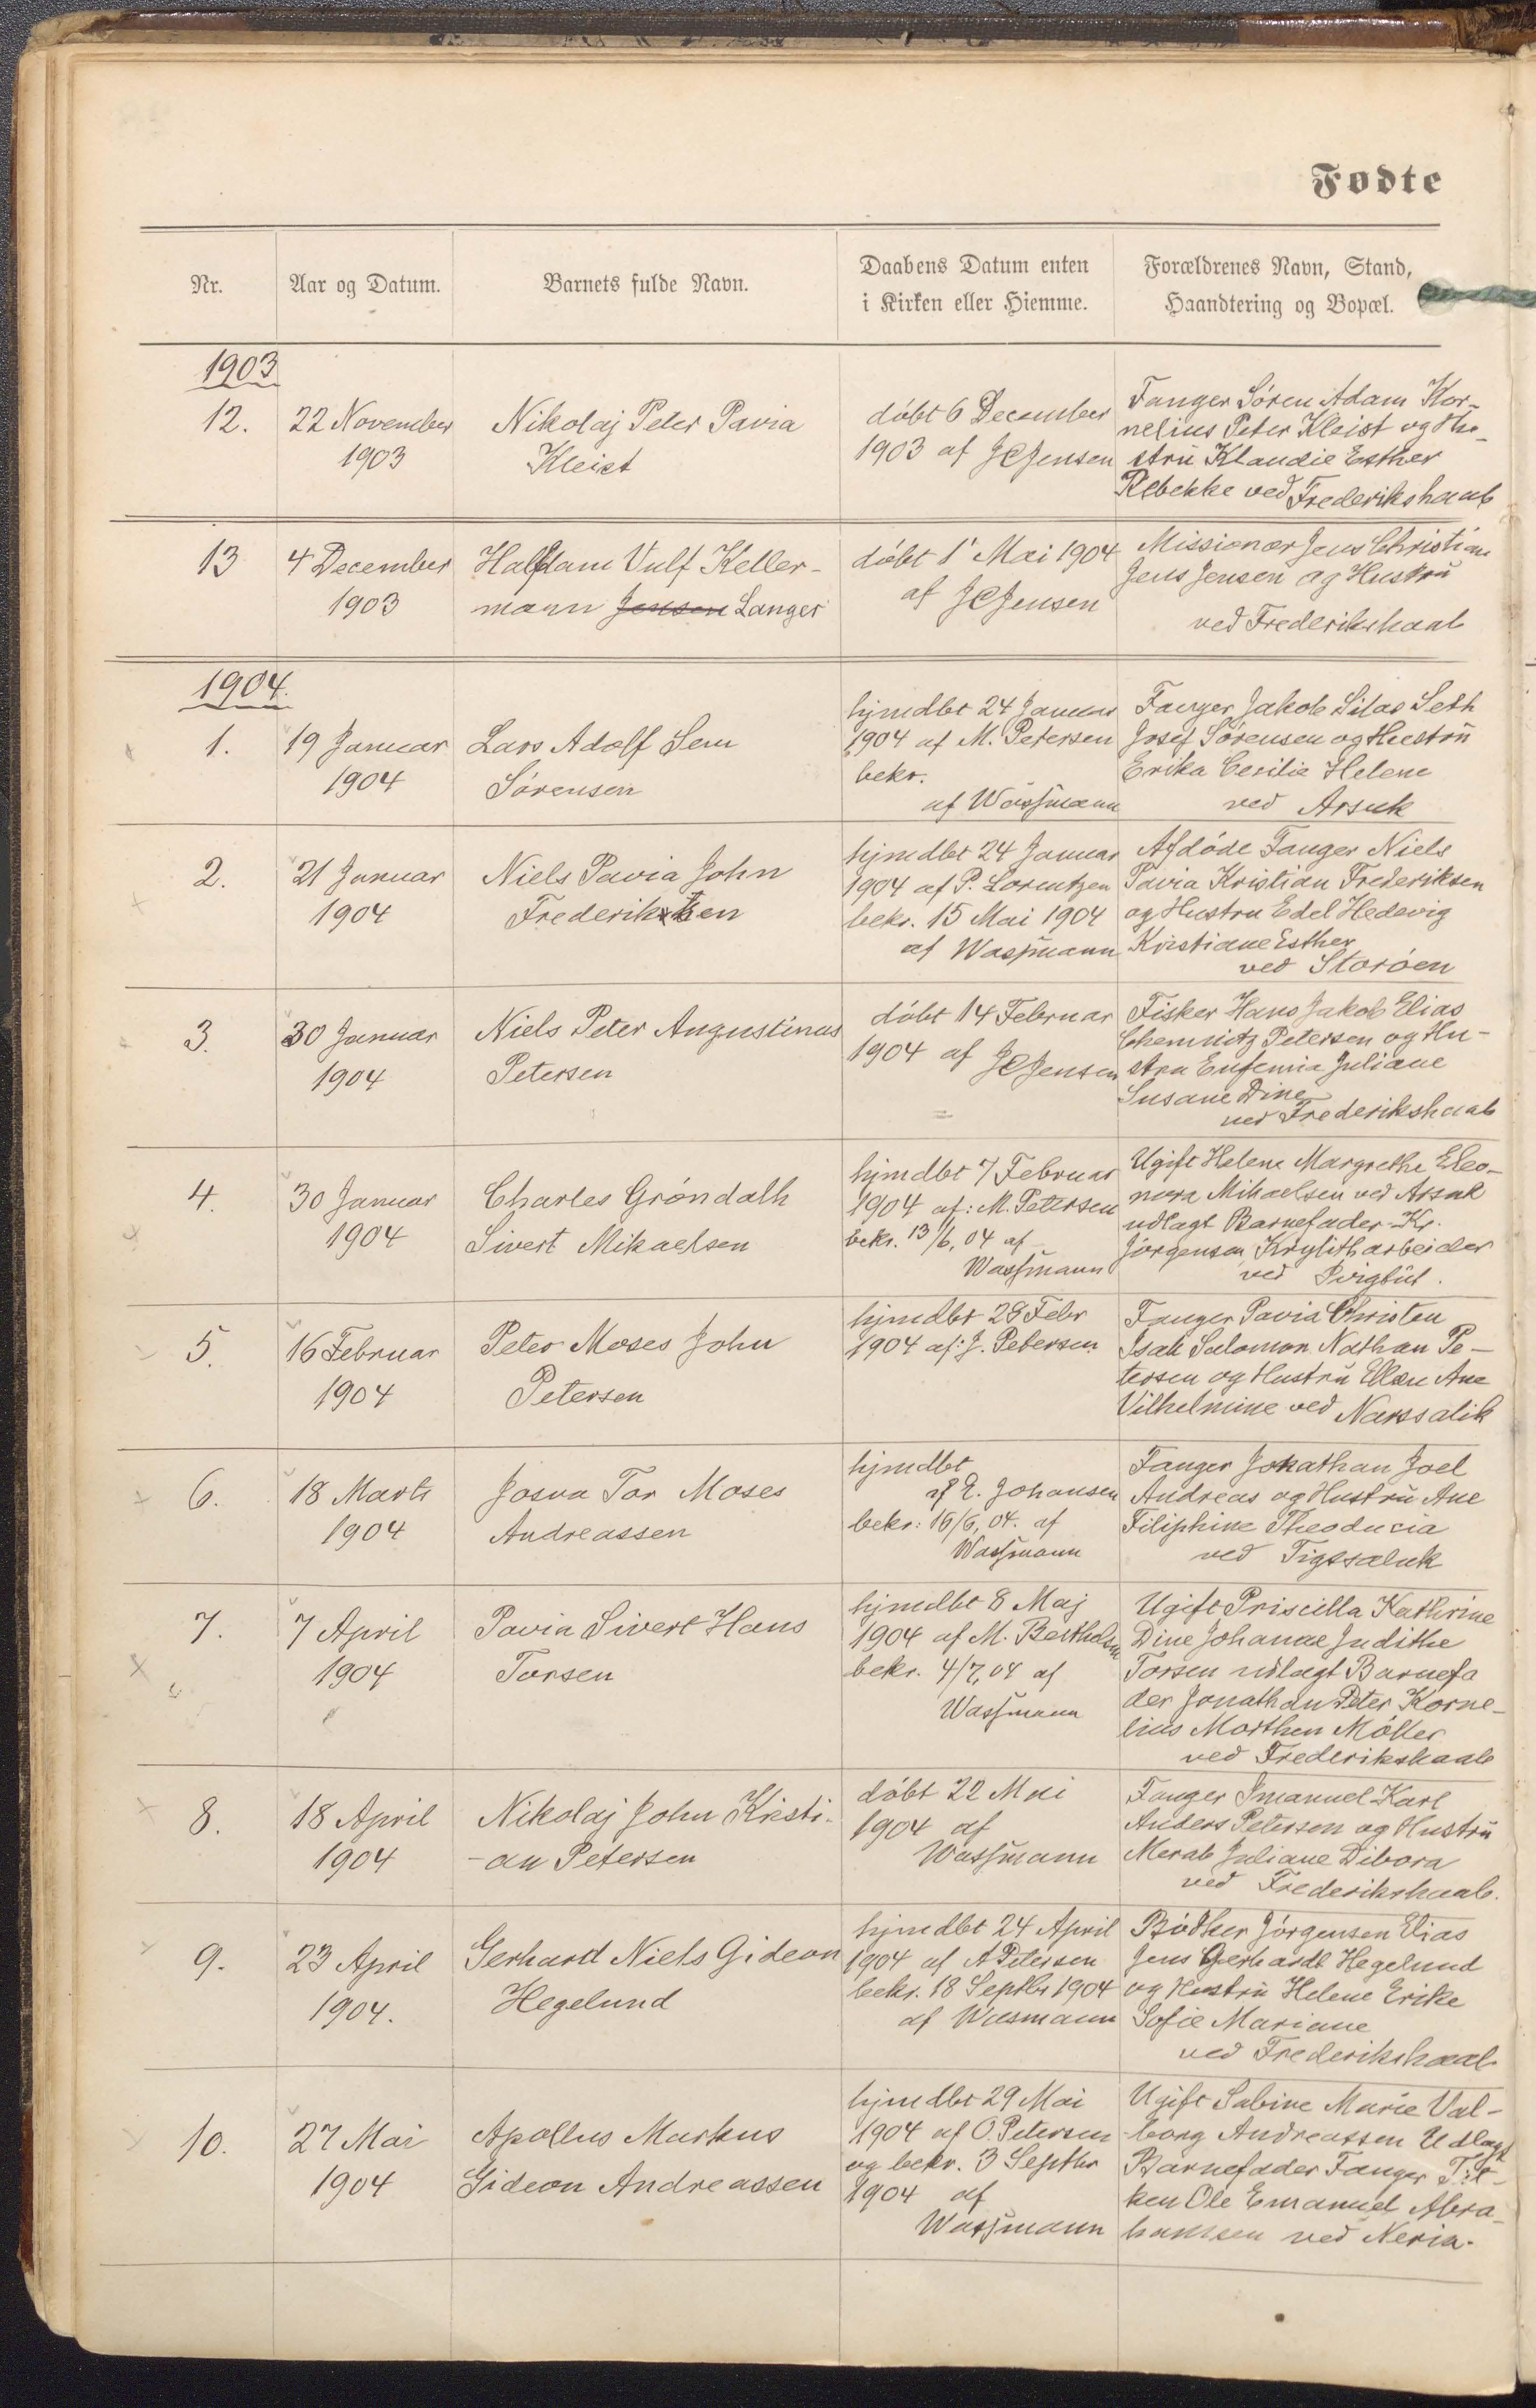 Fødte
Nr.
Aar og Datum.
Barnets fulde Navn.
Daabens Datum enten
i Kirken eller Hiemme.
Forældrenes Navn, Stand,
Haandtering og Bopæl.
1903
12.
22 November
1903
Nikolaj Peter Pavia
Kleist
døbt 6 December
1903 af JCJensen
Fanger Søren Adam Kor-
nelius Peter Kleist og Hu-
stru Klaudie Esther
Rebekke ved Frederikshaab
13
4 December
1903
Halfdam Vulf Keller-
mann Jensen Langer
døbt 1' Mai 1904
af JCJensen
Missionær Jens Christian
Jens Jensen og Hustru
ved Frederikshaab
1904.
1.
19 Januar
1904
Lars Adolf Sem
Sørensen
hjmdbt 24 Januar
1904 af M. Petersen
bekr.
af Wassmann
Fanger Jakob Silas Seth
Josef Sørensen og Hustru
Erika Cecilie Helene
ved Arsuk
2.
21 Januar
1904
Niels Pavia John
Frederiksen
hjmdbt 24 Januar
1904 af P. Lorentzen
bekr. 15 Mai 1904
af Wassmann
Afdøde Fanger Niels
Pavia Kristian Frederiksen
og Hustru Edel Hedevig
Kristiane Esther
ved Storøen
3.
30 Januar
1904
Niels Peter Augustinus
Petersen
døbt 14 Februar
1904 af JCJensen
Fisker Hans Jakob Elias
Chemnitz Petersen og Hu-
stru Eufemia Juliane
Susane Dine
ved Frederikshaab
4.
30 Januar
1904
Charles Grøndalh
Sivert Mikaelsen
hjmdbt 7 Februar
1904 af: M. Petersen
bekr. 13/6, 04 af
Wassmann
Ugift Helene Margrethe Eleo-
nora Mikaelsen ved Arsuk
udlagt Barnefader Kr.
Jørgensen Krylitharbeider
ved Ivigtût.
5.
16 Februar
1904
Peter Moses John
Petersen
hjmdbt 28 Febr
1904 af: J. Petersen
Fanger Pavia Christen
Isak Salomon Nathan Pe-
tersen og Hustru Ellen Ane
Vilhelmine ved Narssalik
6.
18 Marts
1904
Josva Tor Moses
Andreassen
hjmdbt
af E. Johansen
bekr: 16/6, 04. af
Wassmann
Fanger Jonathan Joel
Andreas og Hustru Ane
Filiphine Theoducia
ved Tigssaluk
7.
7 April
1904
Pavia Sivert Hans
Torsen
hjmdbt 8 Maj
1904 af M. Berthelsen
bekr. 4/7, 04 af
Wassmann
Ugift Priscilla Kathrine
Dine Johanne Judithe
Torsen udlagt Barnefa
der Jonathan Peter Korne-
lius Morthen Møller
ved Frederikshaab
8.
18 April
1904
Nikolaj John Kristi-
-an Petersen
døbt 22 Mai
1904 af
Wassmann
Fanger Imanuel Karl
Anders Petersen og Hustru
Merab Juliane Dibora
ved Frederikshaab.
9.
23 April
1904.
Gerhard Niels Gideon
Hegelund
hjmdbt 24 April
1904 af A Petersen
bekr. 18 Septbr 1904
af Wasmann
Bødker Jørgensen Elias
Jens Gerhardt Hegelund
og Hustru Helene Erike
Sofie Mariane
ved Frederikshaab
10.
27 Mai
1904
Apollus Markus
Gideon Andreassen
hjmdbt 29 Mai
1904 af O. Petersen
og bekr. 3 Septbr
1904 af
Wassmann
Ugift Sabine Marie Val-
borg Andreassen Udlagt
Barnefader Fanger
ken Ole Emanuel Abra-
hamsen ved Neria.